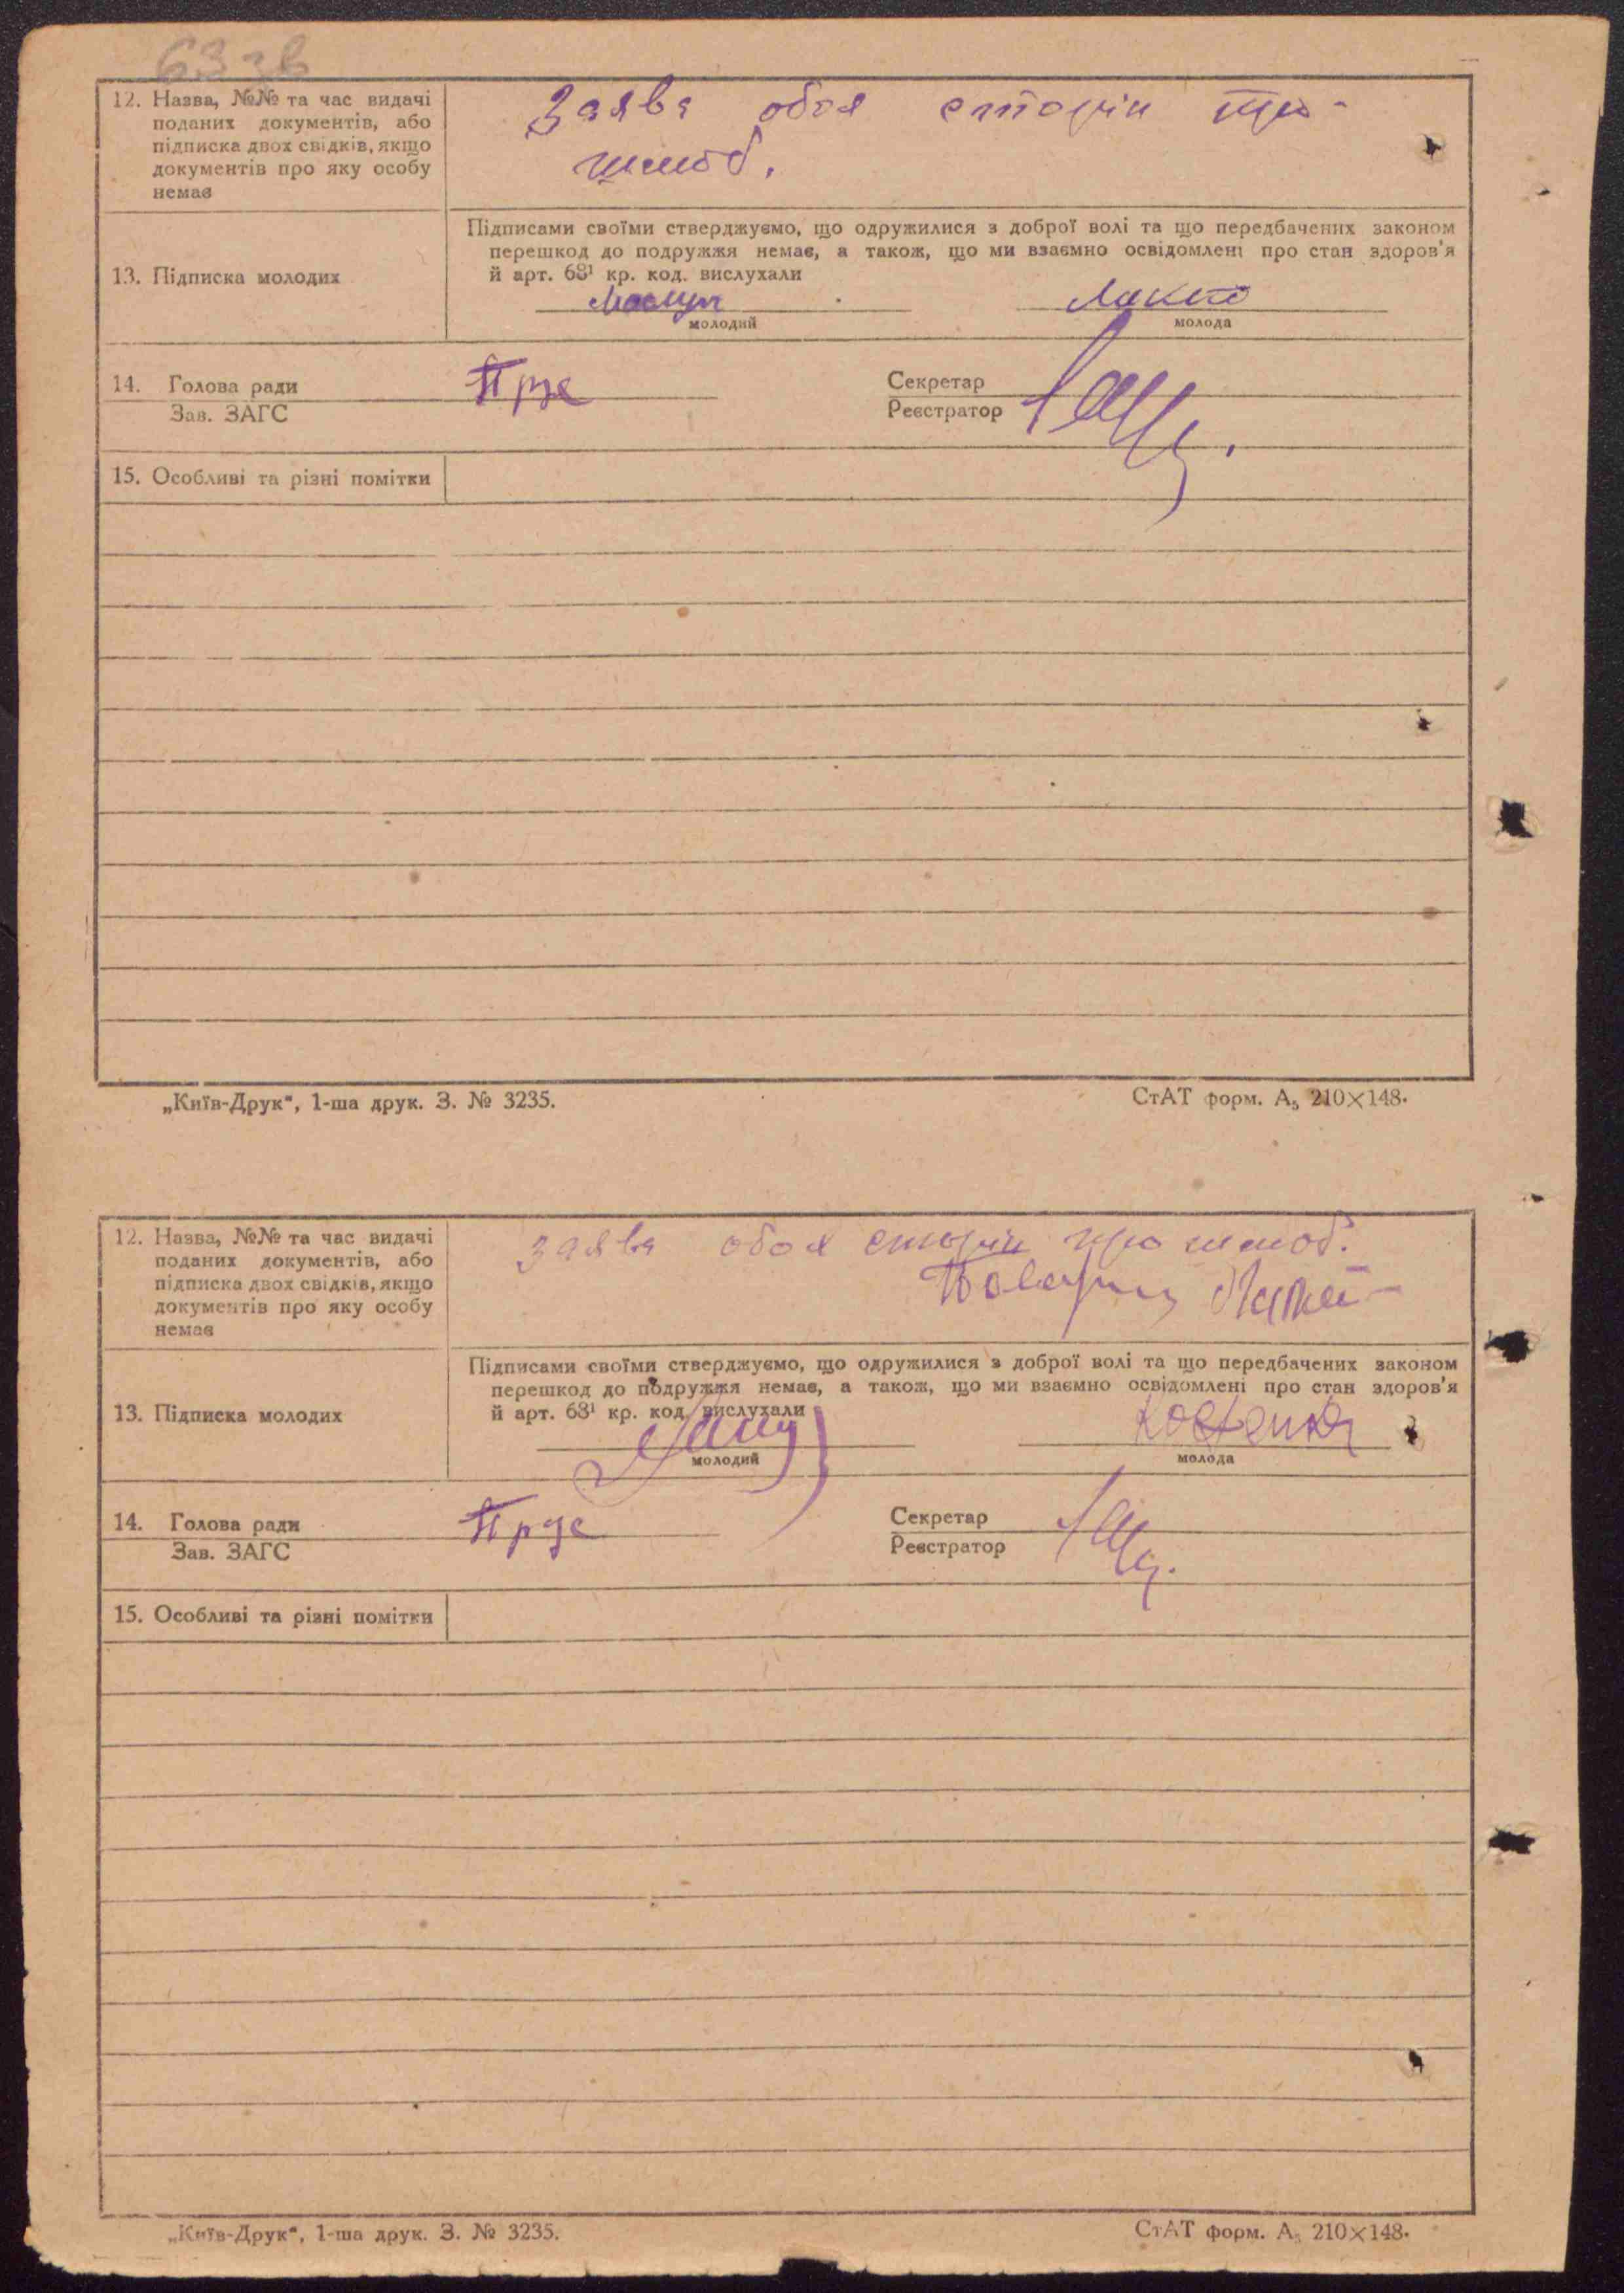 63 зв
12. Назва, №№ та час видачі
поданих документів, або
підписка двох свідків, якщо
документів про яку особу
немає
Заява обоя сторін про
шлюб.
13. Підписка молодих
Підписами своїми стверджуємо, що одружилися з доброї волі та що передбачених законом
перешкод до подружжя немає, а також, що ми взаємно освідомлені про стан здоров'я
й арт. 68¹ кр. код. вислухали
молодий
молода
14. Голова ради
Зав. ЗАГС
Секретар
Реєстратор
15. Особливі та різні помітки
„Київ-Друк“, 1-ша друк. З. № 3235.
СтАТ форм. А₅ 210×148.
12. Назва, №№ та час видачі
поданих документів, або
підписка двох свідків, якщо
документів про яку особу
немає
заява обоя сторін про шлюб.
13. Підписка молодих
Підписами своїми стверджуємо, що одружилися з доброї волі та що передбачених законом
перешкод до подружжя немає, а також, що ми взаємно освідомлені про стан здоров'я
й арт. 68¹ кр. код. вислухали
молодий
молода
14. Голова ради
Зав. ЗАГС
Секретар
Реєстратор
15. Особливі та різні помітки
„Київ-Друк“, 1-ша друк. З. № 3235.
СтАТ форм. А₅ 210×148.